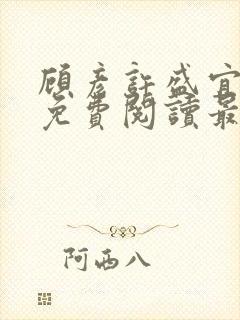 顧彥許盛宜
免費閱讀最
阿西八